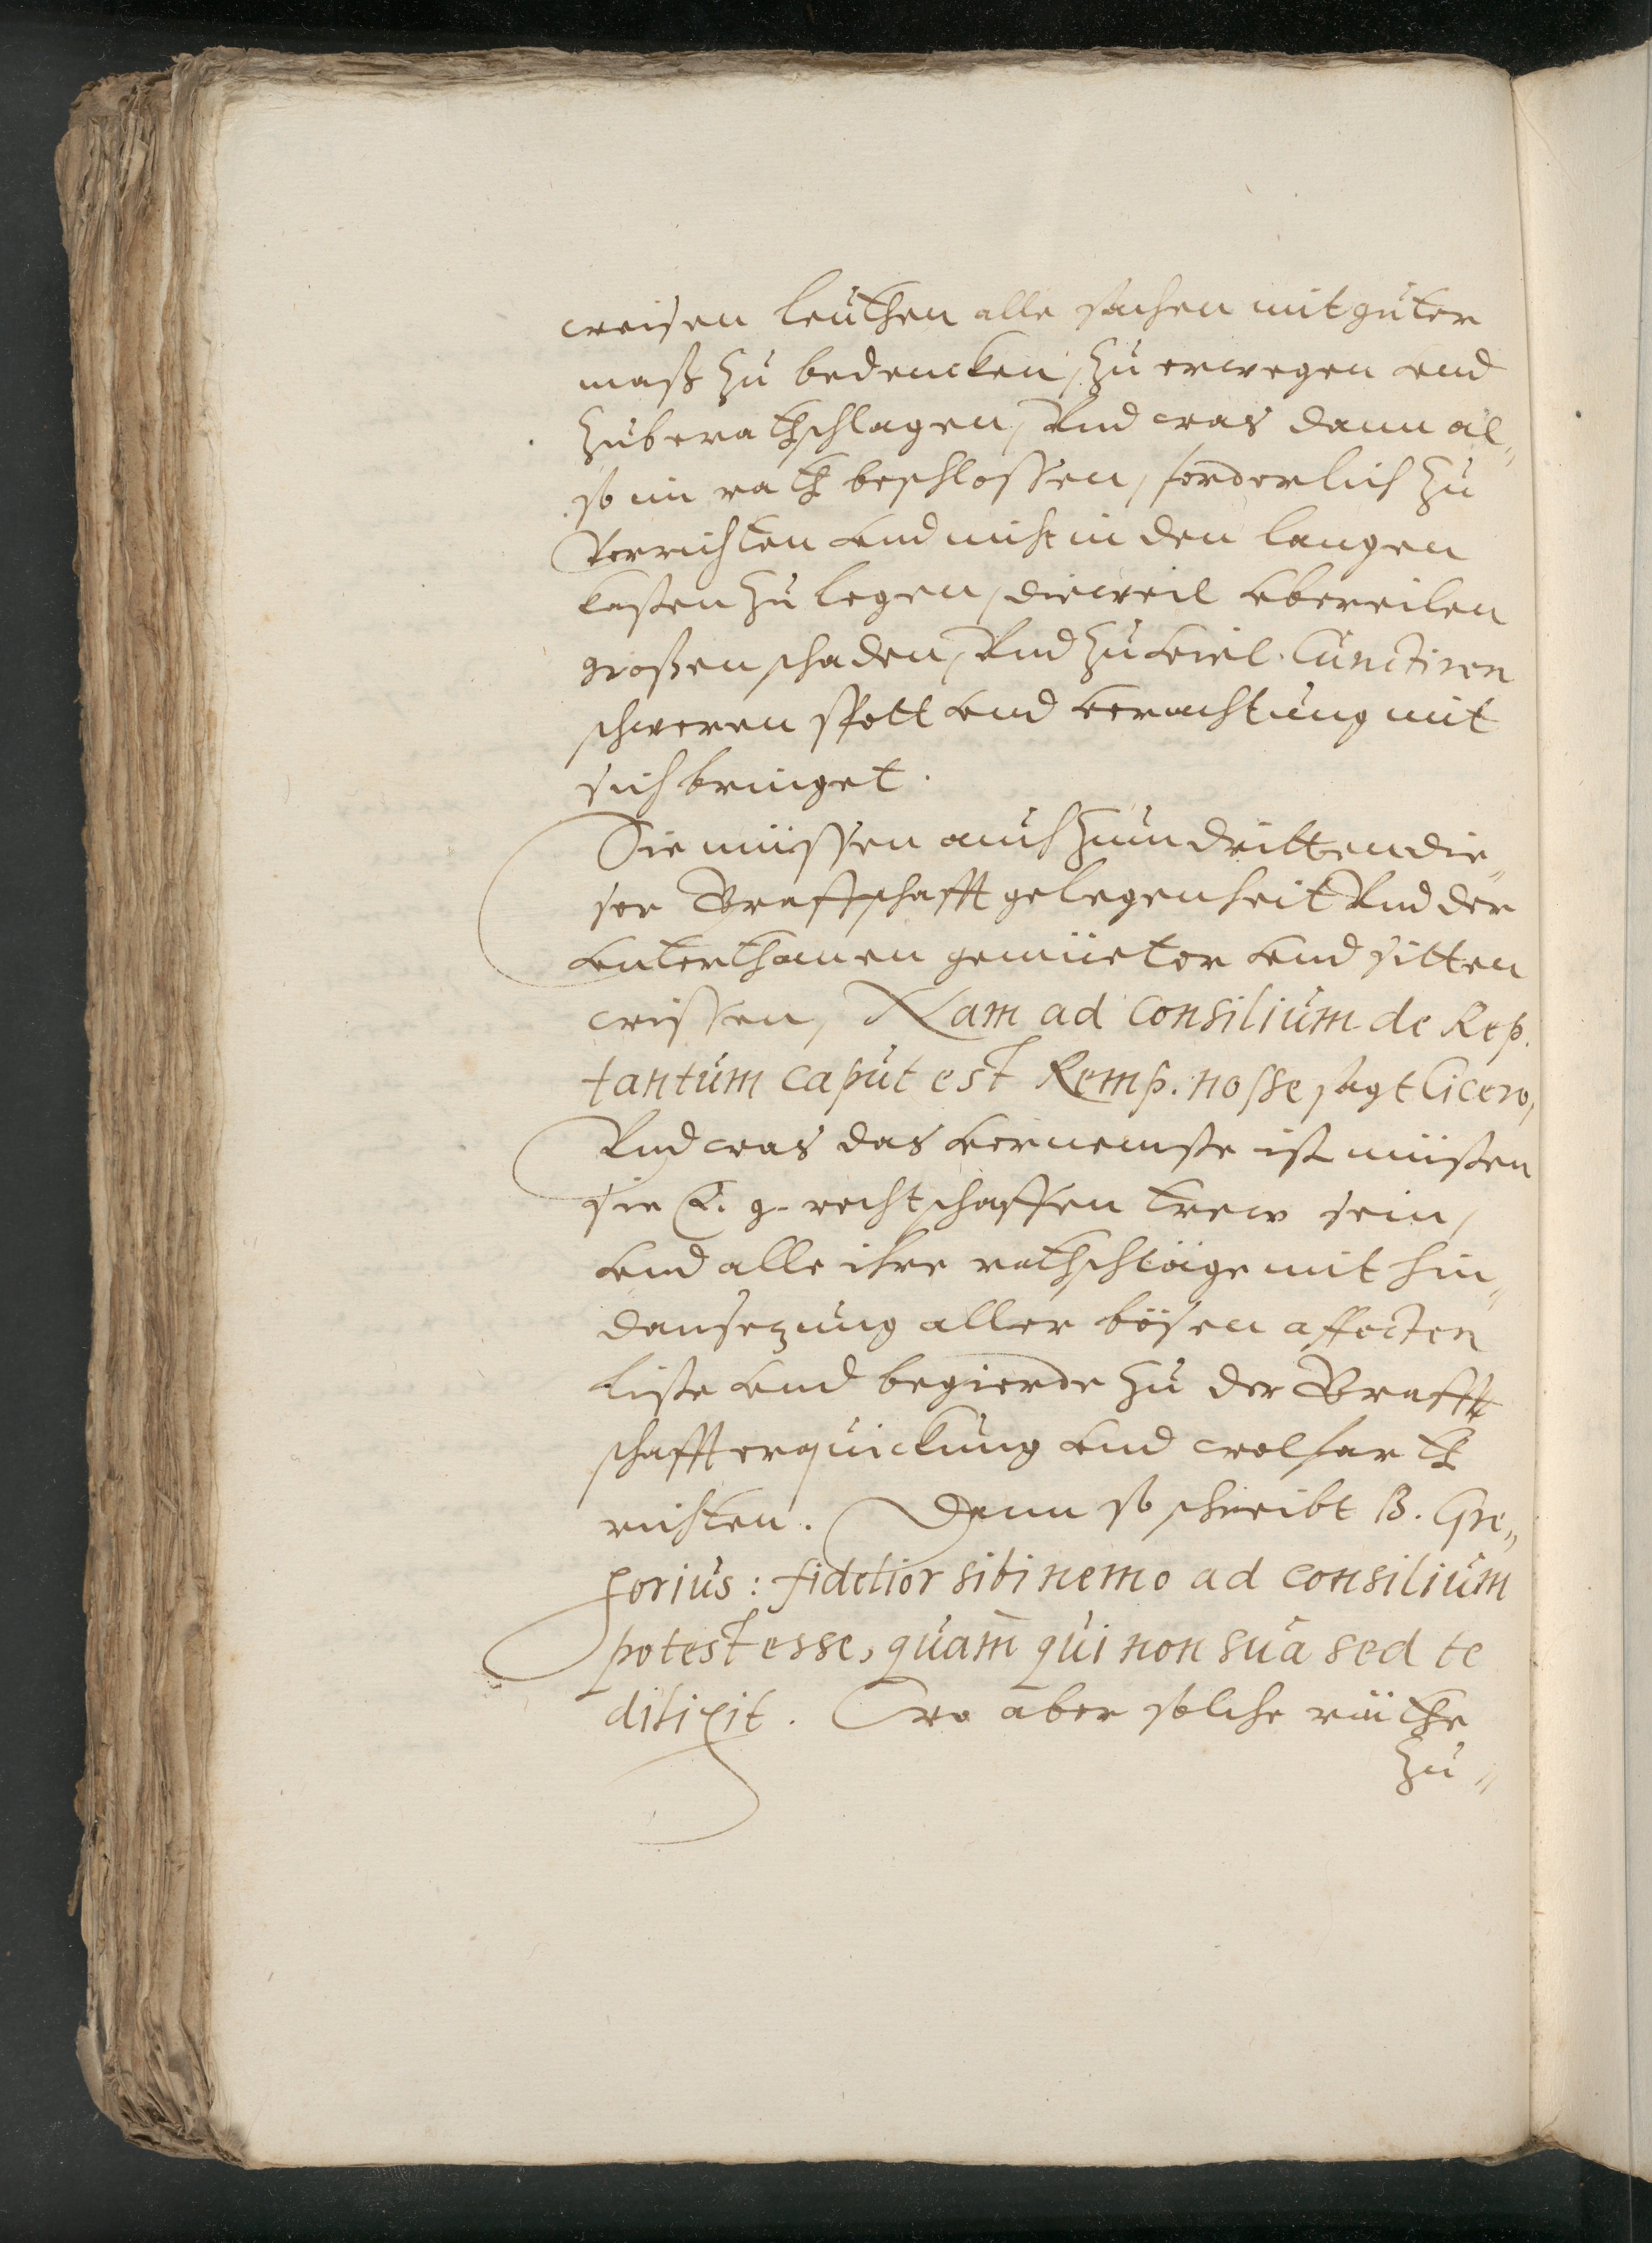 weisen leuthen alle sachen mit guter
maß zu bedencken, zu erwegen vnd
zuberathschlagen, Vnd was dann al„
so im rath beschlossen, forderlich zu
Verrichten vnd nicht in den langen
kasten zu legen, dieweil vbereilen
großen schaden, Vnd zu viel Cunctiren
schweren spott vnd verachtung mit
sich bringet.
Sie müssen auch zum dritten die„
ser Graffschafft gelegenheit Vnd der
vnterthanen gemüeter vnd sitten
wissen, Nam ad consilium de Rep.
tantum caput est Remp. nosse sagt Cicero,
Vnd was das vernemste ist müißen
sie E. g. rechtschaffen trew sein,
vnd alle ihre rathschläge mit hin„
dansezung aller bösen affecten
liste vnd begierde zu der Graff
schafft erquickung vnd wolfarth
richten. Denn so schreibt B. Gre„
gorius: fidelior sibi nemo ad consilium
potest esse, quam qui non sua sed te
dilixit. Wo aber solche räthe
zu„